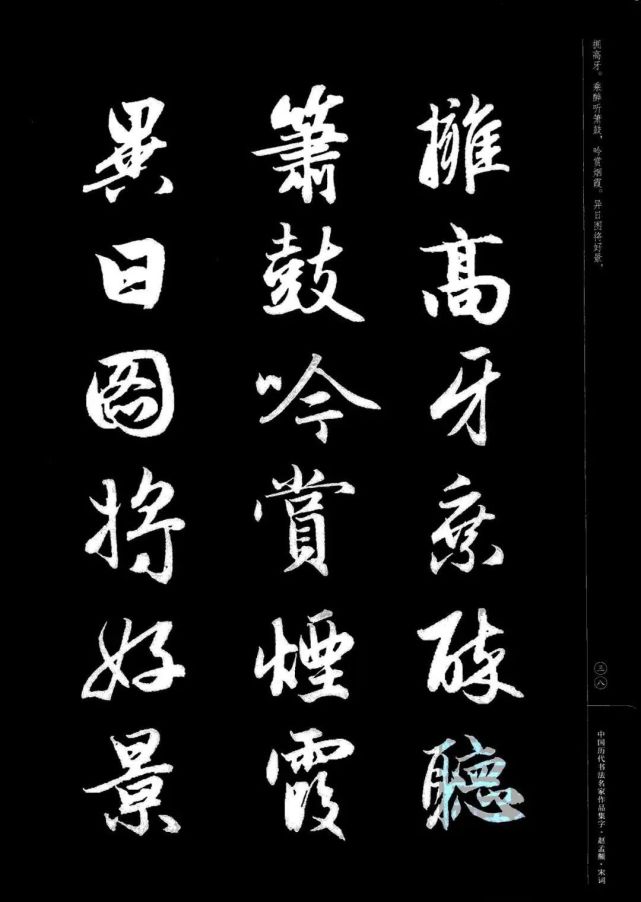 擁高牙乘醉聽
簫鼓吟賞煙霞
異日圖將好景
拥高牙。乘醉听箫鼓，吟赏烟霞。异日图将好景，
三八
中国历代书法名家作品集字·赵孟頫·宋词